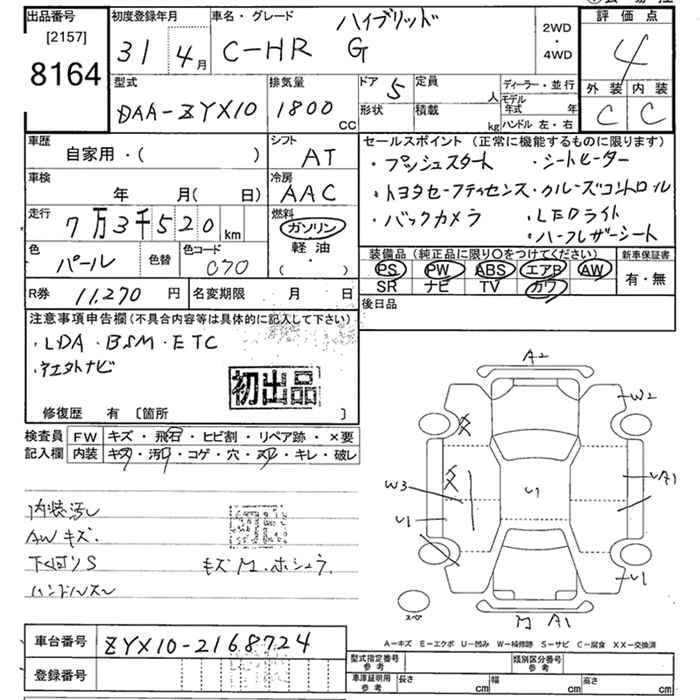 出品番号
[2157]
8164
初度登録年月
31 4月
車名・グレード
ハイブリッド
C-HR G
2WD
・
4WD
評価点
4
外装 内装
C C
型式
DAA-ZYX10
排気量
1800 CC
ドア 5
形状
定員 人
積載 kg
ディーラー・並行
モデル年式 年
ハンドル 左・右
車歴
自家用・( )
シフト
AT
車検
年 月( 日)
冷房
AAC
走行
7万3千520km
燃料
ガソリン
軽油
・( )
色
パール
色替
色コード
070
R券 11,270 円
名変期限 月 日
セールスポイント(正常に機能するものに限ります)
・プッシュスタート ・シートヒーター
・トヨタセーフティセンス・クルーズコントロール
・バックカメラ ・LEDライト
・ハーフレザーシート
装備品(純正品に限り○をつけてください)
PS PW ABS エアB AW
SR ナビ TV カワ
新車保証書
有・無
後日品
注意事項申告欄(不具合内容等は具体的に記入して下さい)
・LDA・BSM・ETC
・社外ナビ
初出品
修復歴 有 〔箇所 〕
検査員記入欄
FW キズ・飛石・ヒビ割・リペア跡・×要
内装 キズ・汚レ・コゲ・穴・スレ・キレ・破レ
内装汚レ
AWキズ.
下回りS
キズM.ホシュウ.
ハンドルスレ
A2
W2
W3
U1
U1
UA1
U1
スペア
M A1
A-キズ E-エクボ U-凹み W-補修跡 S-サビ C-腐食 XX-交換済
車台番号 ZYX10-2168724
登録番号
型式指定番号 参考
類別区分番号 参考
車庫証明用 参考
長さ cm 幅 cm 高さ cm